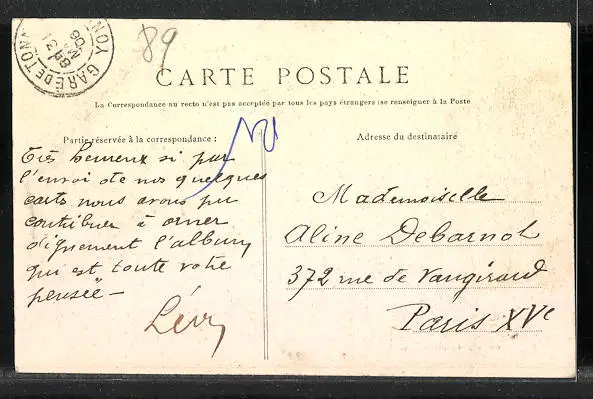 89
GARE DE
CARTE POSTALE
La Correspondance au recto n'est pas acceptée par tous les pays étrangers (se renseigner à la Poste
Partie réservée à la correspondance :
Très heureux si par
l'envoi de nos quelques
carts nous avons pu
contribuer à orner
dignement l'album
qui est toute votre
pensée —
Lévy
Adresse du destinataire
Mademoiselle
Aline Debarnot
372 rue de Vaugirard
Paris XVe